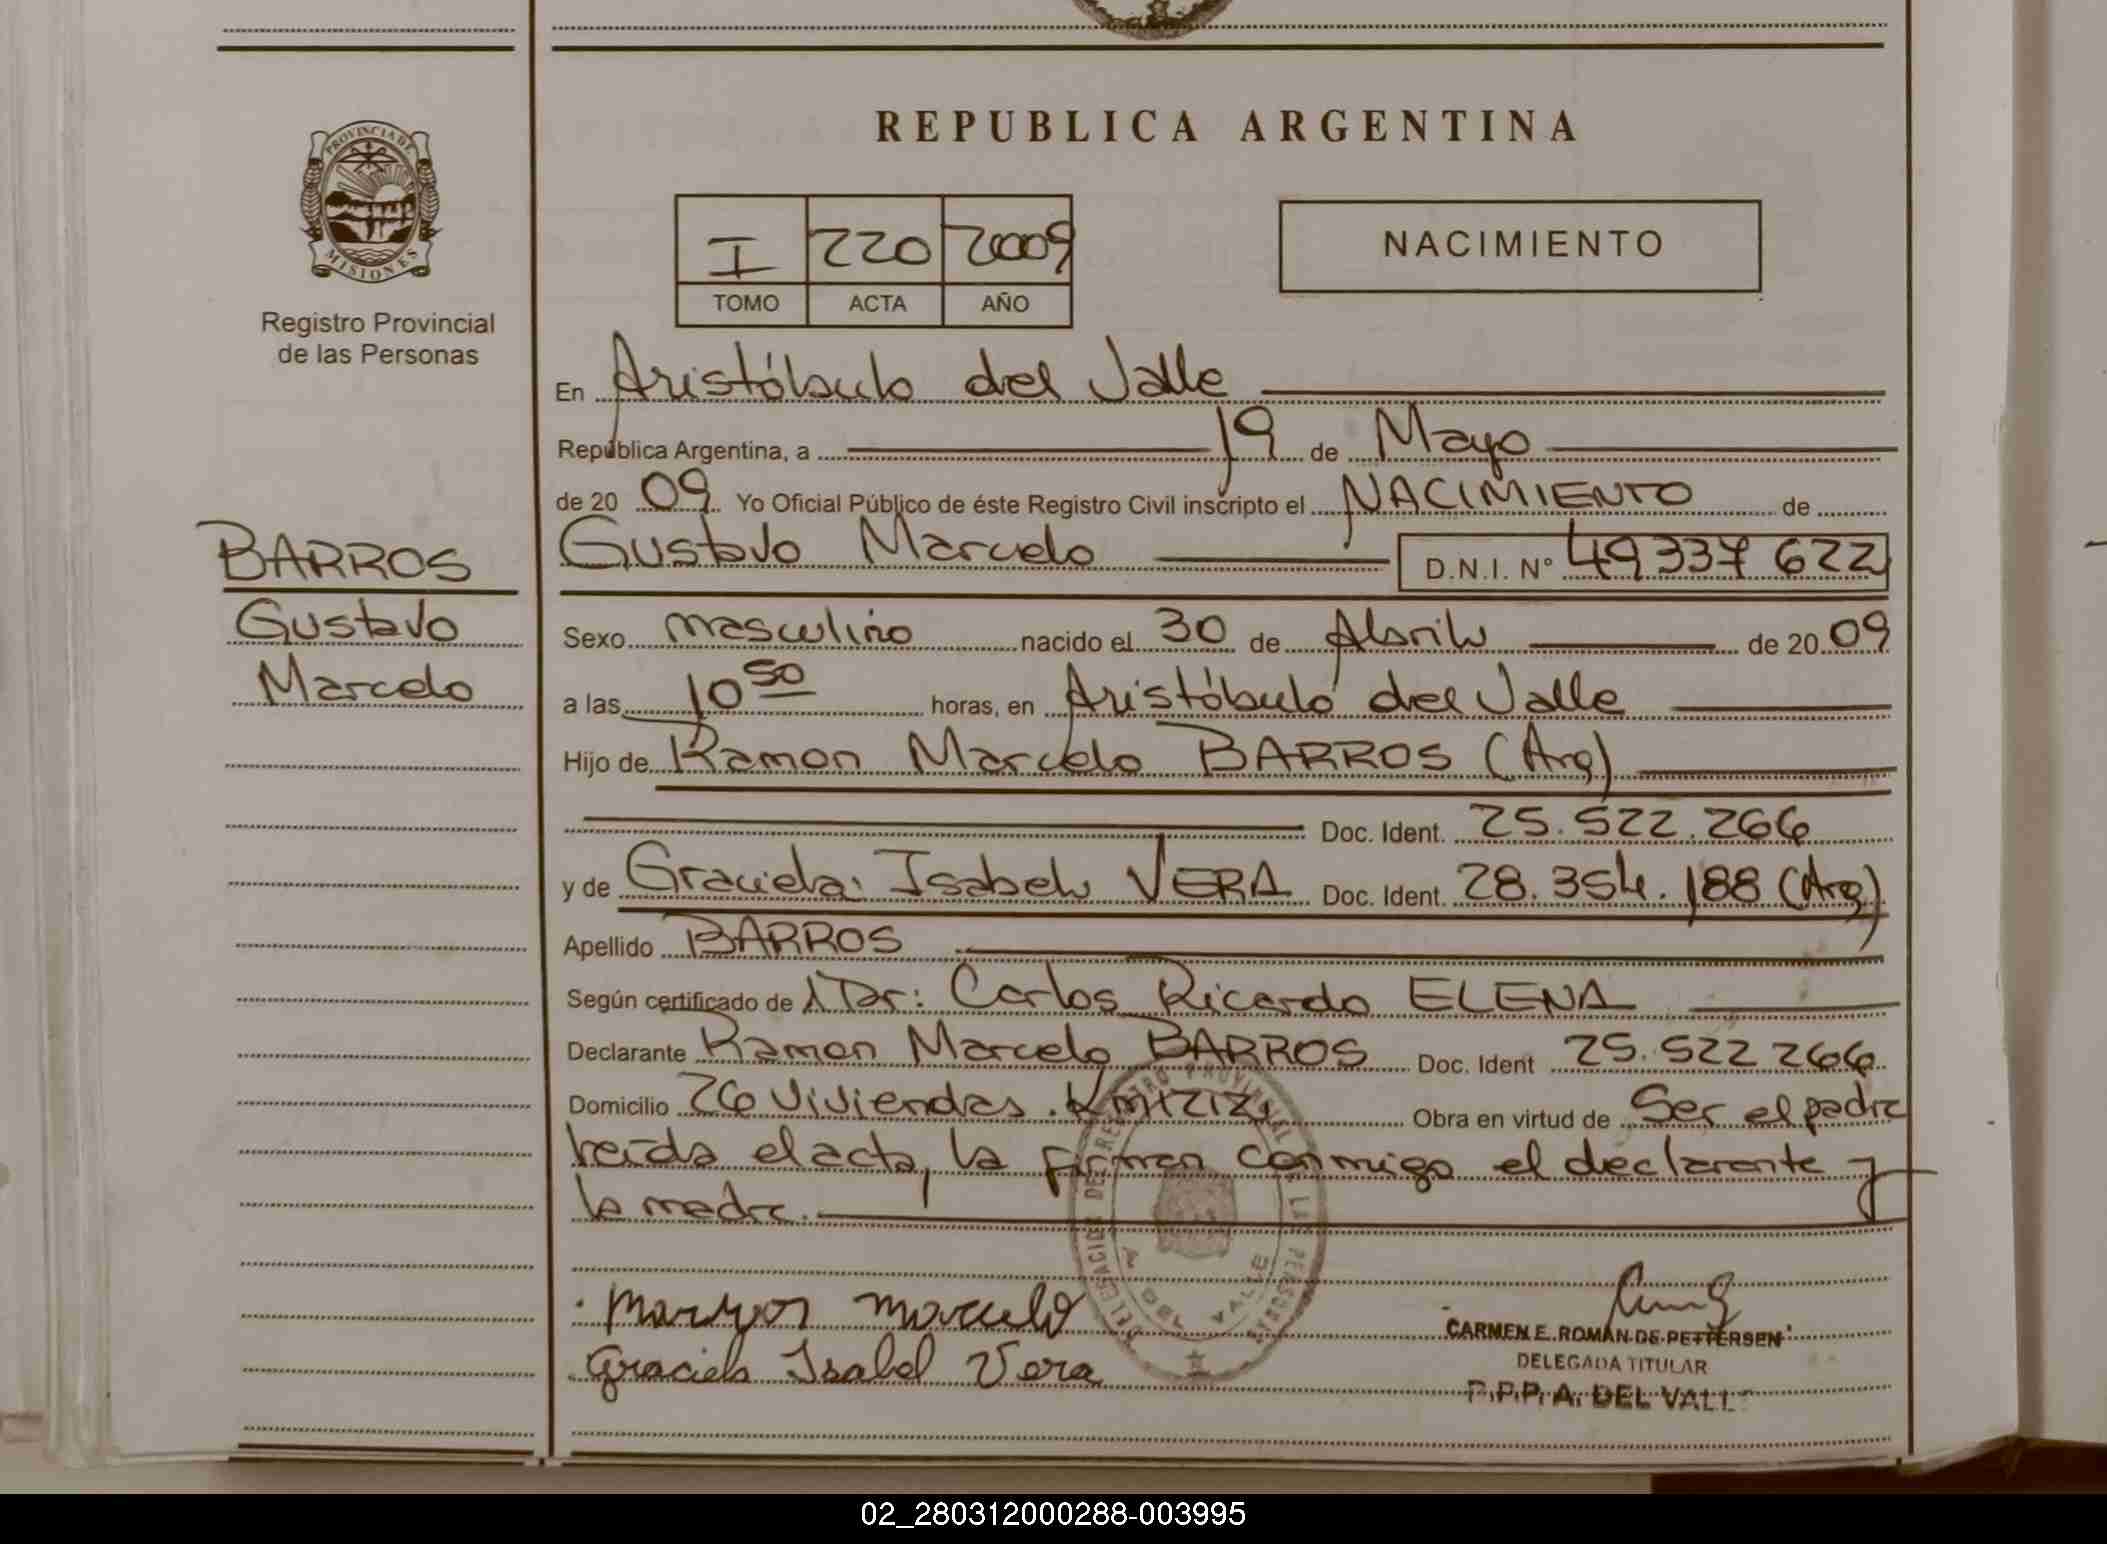 REPUBLICA ARGENTINA
PROVINCIA DE
MISIONES
Registro Provincial
de las Personas
I 220 2009
TOMO ACTA AÑO
NACIMIENTO
En Aristóbulo del Valle
República Argentina, a 19 de Mayo
de 20 09 Yo Oficial Público de éste Registro Civil inscripto el NACIMIENTO de
BARROS
Gustavo
Marcelo
Gustavo Marcelo D.N.I. N° 49337622
Sexo masculino nacido el 30 de Abril de 20 09
a las 10 50 horas, en Aristóbulo del Valle
Hijo de Ramon Marcelo BARROS (Arg)
Doc. Ident. 25.522.266
y de Graciela Isabel VERA Doc. Ident. 28.354.188 (Arg)
Apellido BARROS
Según certificado de Dr: Carlos Ricardo ELENA
Declarante Ramon Marcelo BARROS Doc. Ident 25.522 266
Domicilio 26 Viviendas. Km1212 Obra en virtud de Ser el padre
leída el acta, la firman conmigo el declarante y
la madre.
Marcelo
Graciela Isabel Vera
A. DEL VALLE
CARMEN E. ROMAN DE PETTERSEN
DELEGADA TITULAR
A. DEL VALL
02_280312000288-003995